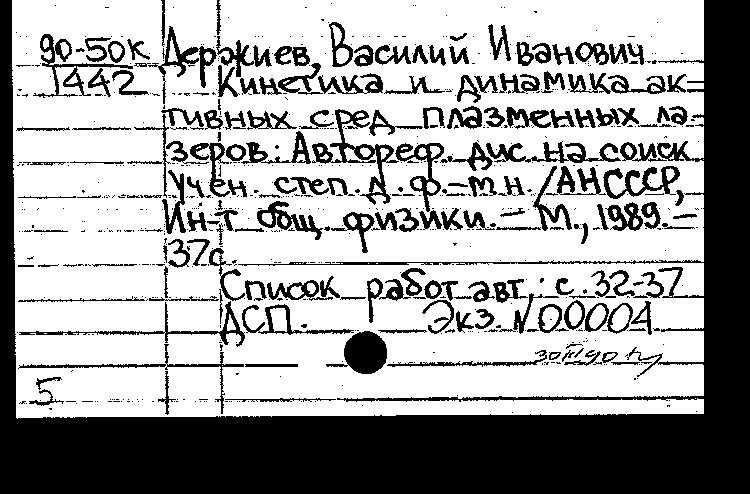 90-50к Держиев, Василий Иванович.
1442 Кинетика и динамика ак=
тивных сред плазменных ла-
зеров: Автореф. дис. на соиск
учен. степ. д. ф.-м.н. /АНСССР,
Ин-т общ. физики. - М., 1989. -
37с.
Список работ авт.: с. 32-37
ДСП. Экз. N00004
30 III 90
5